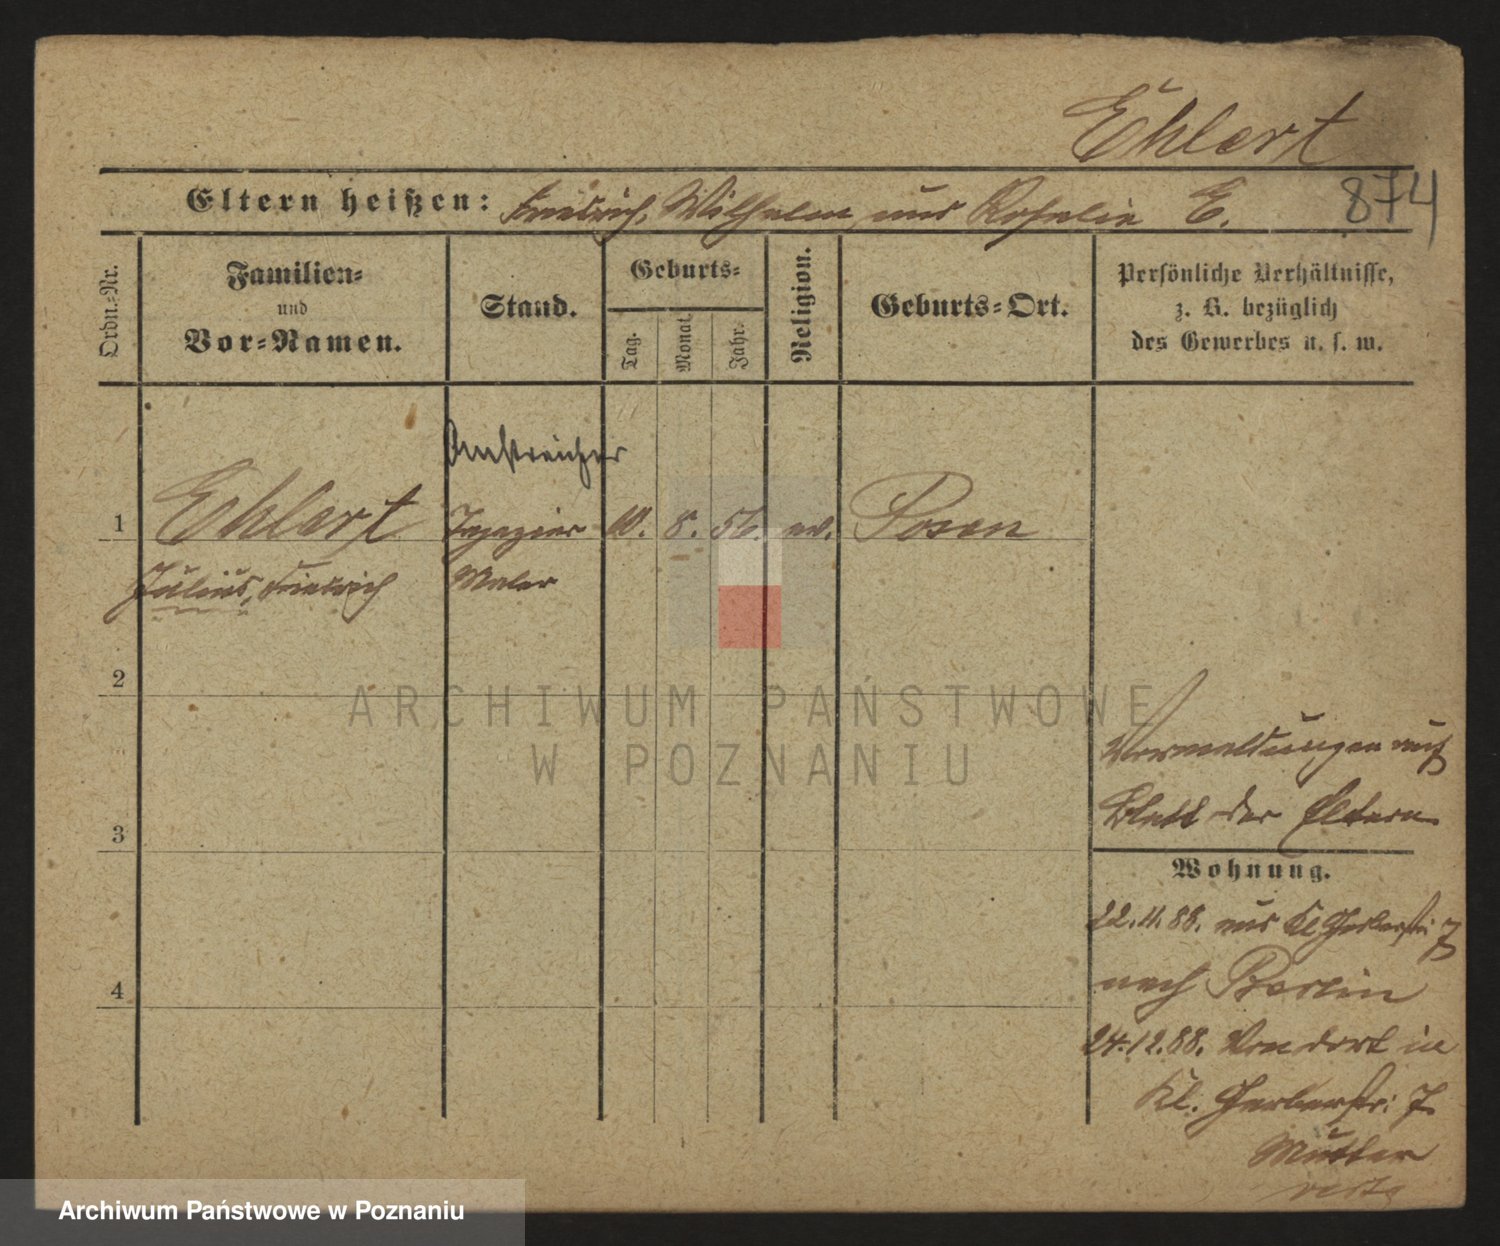 Ehlert
Eltern heißen: Friedrich, Wilhelm und Rosalie E.
874
Ordn.=Nr.
Familien=
und
Vor=Namen.
Stand.
Geburts=
Tag.
Monat.
Jahr.
Religion.
Geburts=Ort.
Persönliche Verhältnisse,
z. B. bezüglich
des Gewerbes u. s. w.
Anstreicher
1 Ehlert Tapezier 10. 8. 56. ev. Posen
Julius, Friedrich Maler
2
3
4
Vermeldungen auf
Blatt der Eltern
Wohnung.
22.11.88. aus Kl. Gerberstr. 7
nach Berlin
24.12.88. Von dort in
Kl. Gerberstr: 7.
Mutter
ARCHIWUM PAŃSTWOWE
W POZNANIU
Archiwum Państwowe w Poznaniu